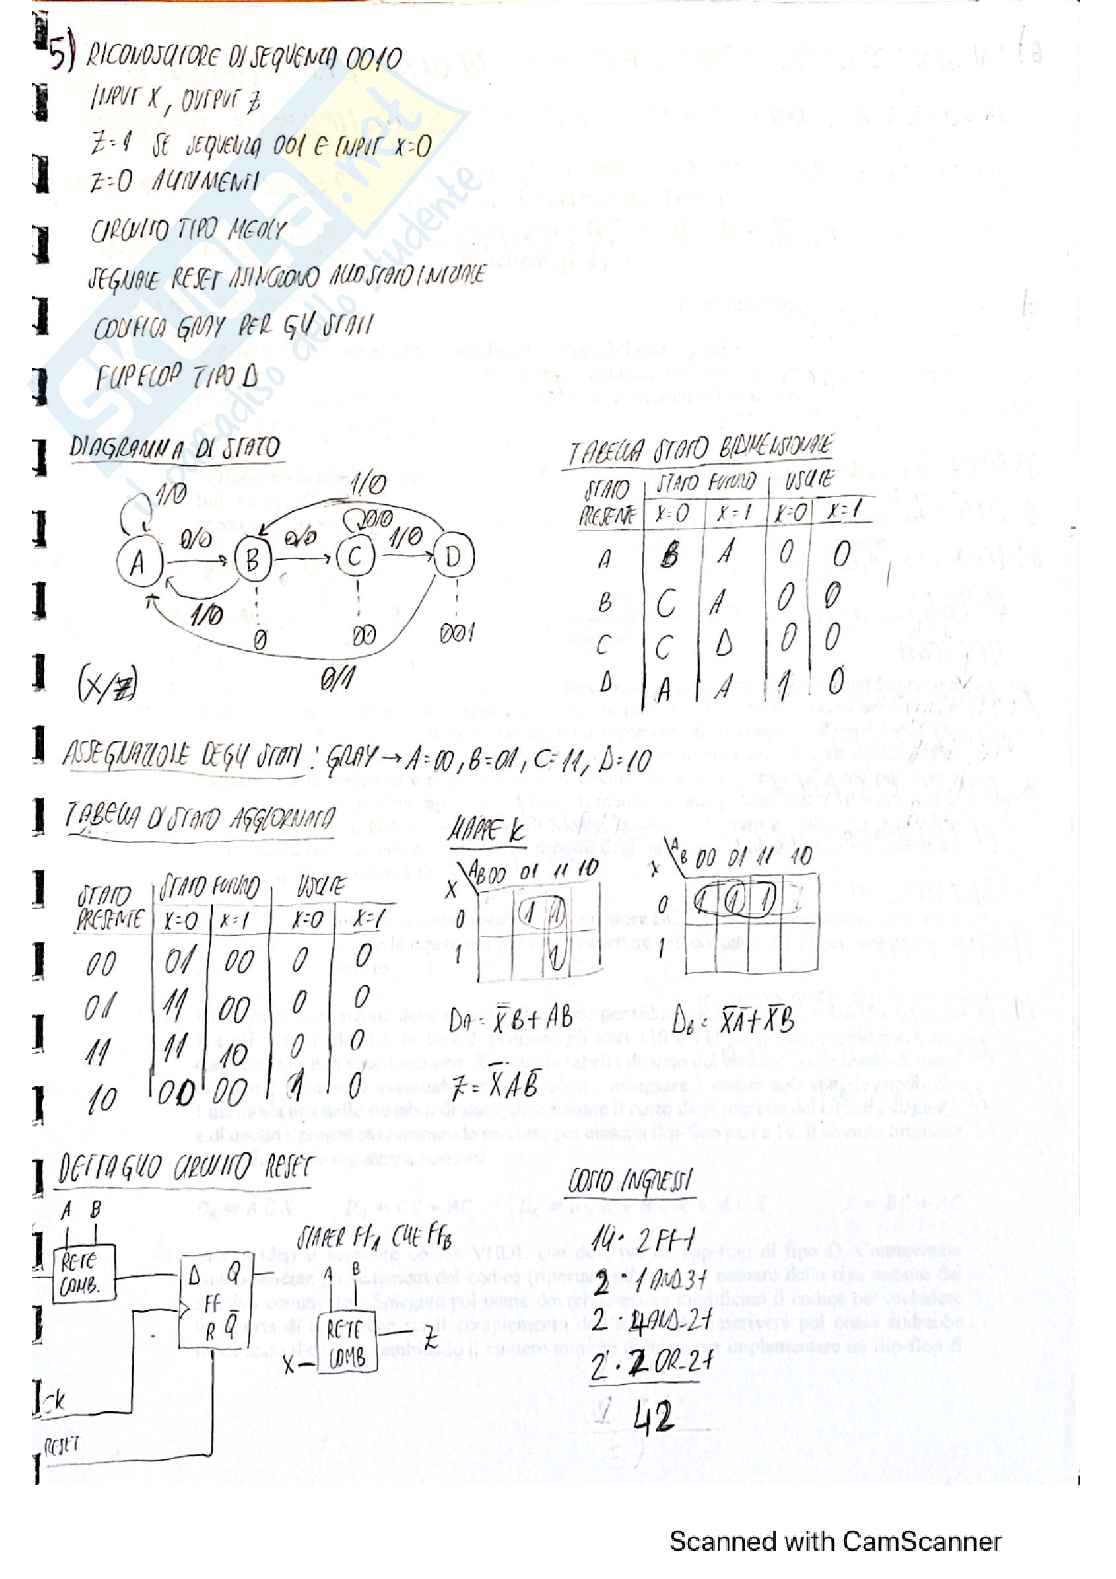 5) RICONOSCITORE DI SEQUENZA 0010
INPUT X, OUTPUT Z
Z=1 SE SEQUENZA 001 E INPUT X=0
Z=0 ALTRIMENTI
CIRCUITO TIPO MEALY
SEGNALE RESET ASINCRONO ALLO STATO INIZIALE
CODIFICA GRAY PER GLI STATI
FLIP FLOP TIPO D
DIAGRAMMA DI STATO
1/0
1/0
0/0
0/0
0/0
1/0
A
B
C
D
1/0
0
00
001
0/1
(X/Z)
TABELLA STATO BIDIMENSIONALE
STATO PRESENTE | STATO FUTURO | USCITE
X=0 | X=1 | X=0 | X=1
A B A 0 0
B C A 0 0
C C D 0 0
D A A 1 0
ASSEGNAZIONE DEGLI STATI: GRAY → A=00, B=01, C=11, D=10
TABELLA DI STATO AGGIORNATA
STATO PRESENTE | STATO FUTURO | USCITE
X=0 | X=1 | X=0 | X=1
00 01 00 0 0
01 11 00 0 0
11 11 10 0 0
10 00 00 1 0
MAPPE K
X \ AB 00 01 11 10
0 1 1
1 1
X \ AB 00 01 11 10
0 1 1 1
1
DA = X̅B + AB
DB = X̅A̅ + X̅B
Z = X̅AB̅
DETTAGLIO CIRCUITO RESET
A B
RETE COMB.
D Q
FF
R Q̅
CK
RESET
SIA PER FFA CHE FFB
A B
X
RETE COMB
Z
COSTO INGRESSI
14 · 2 FF+
2 · 1 AND3+
2 · 4 AND-2+
2 · 2 OR-2+
42
SKUOLA.net
il paradiso dello studente
Scanned with CamScanner